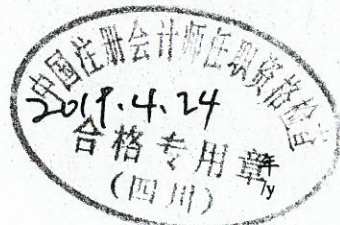 中国注册会计师任职资格检查
2019.4.24
合格专用章
(四川)
年
/y